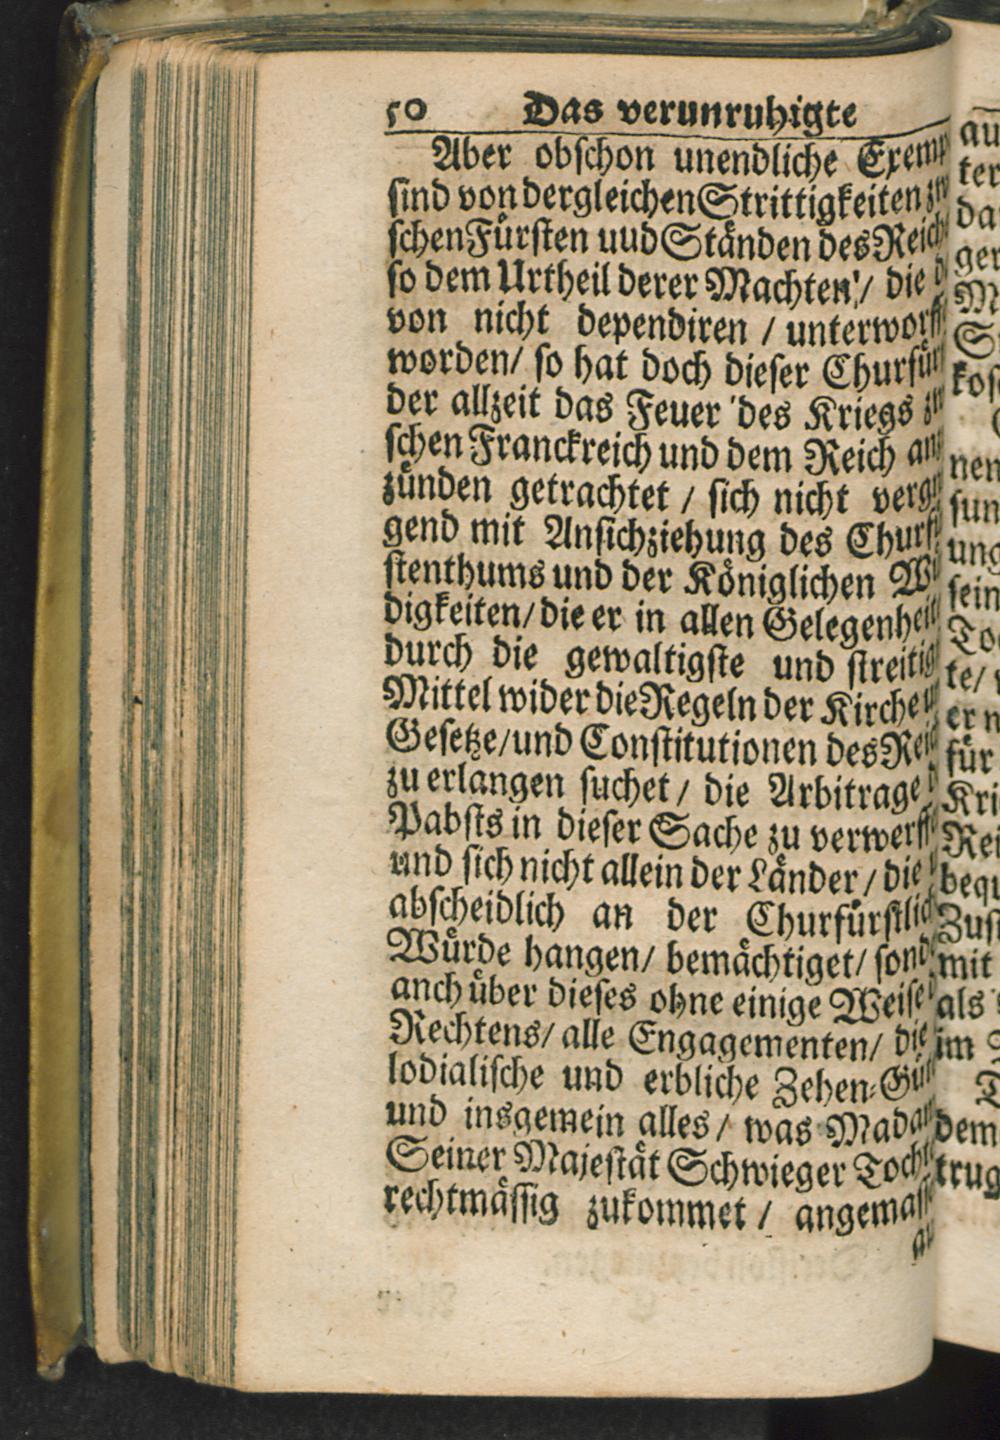 50 Das verunruhigte
Aber obschon unendliche Exemp
sind von dergleichen Strittigkeiten zw
schen Fürsten uud Ständen des Reich
so dem Urtheil derer Machten / die
von nicht dependiren / unterworff
worden / so hat doch dieser Churfür
der allzeit das Feuer des Kriegs zw
schen Franckreich und dem Reich an
zünden getrachtet / sich nicht vergn
gend mit Ansichziehung des Churf
stenthums und der Königlichen
digkeiten / die er in allen Gelegenheit
durch die gewaltigste und streitig
Mittel wider die Regeln der Kirche
Gesetze / und Constitutionen des Rei
zu erlangen suchet / die Arbitrage
Pabsts in dieser Sache zu verwerff
und sich nicht allein der Länder / die
abscheidlich an der Churfürstlic
Würde hangen / bemächtiget / sond
anch über dieses ohne einige Weise
Rechtens / alle Engagementen / die
lodialische und erbliche Zehen-Gü
und insgemein alles / was Mada
Seiner Majestät Schwieger Toch
rechtmässig zukommet / angemass
au
ter
da
ger
M
S
kos
nen
sun
ung
sein
To
te /
er n
für
Kri
Rei
bequ
Zus
mit
als
im
dem
trug